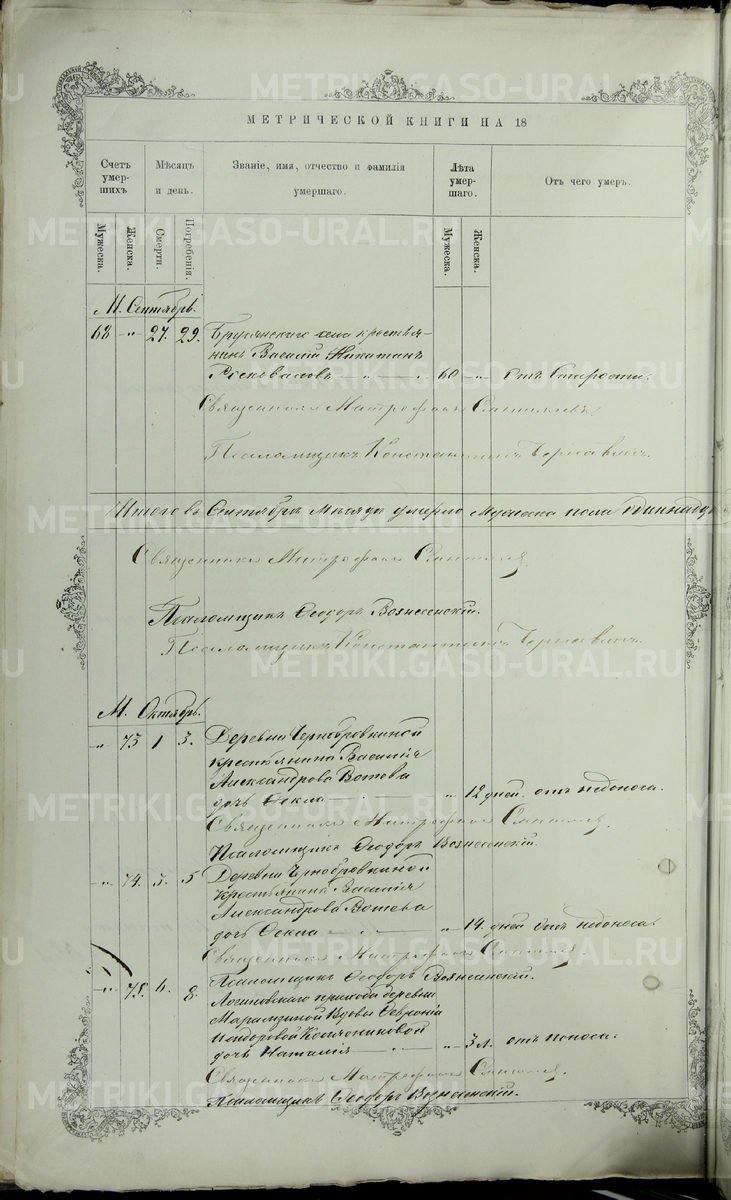 МЕТРИЧЕСКОЙ КНИГИ НА 18
Счетъ умершихъ
Мѣсяцъ и день.
Званіе, имя, отчество и фамилія умершаго.
Лѣта умершаго.
Отъ чего умеръ.
Мужеска.
Женска.
Смерти.
Погребенія.
Мужеска.
Женска.
М. Сентябрь.
68 „ 27. 29. села крестья-
нинъ Василій Никитинъ
60 „ Отъ старости.
Священникъ Митрофанъ
Псаломщикъ Константинъ
Итого въ Сентябрѣ Мѣсяцѣ умерло Мужеска пола
Священникъ Митрофанъ
Псаломщикъ Ѳеодоръ Вознесенскій.
Псаломщикъ Константинъ
М. Октябрь.
„ 73 1 3. Деревни Чернобровкиной
крестьянина Василія
Александрова Вотева
дочь Ѳекла „ 12 дней. отъ недоноса.
Священникъ Митрофанъ
Псаломщикъ Ѳеодоръ Вознесенскій.
„ 74. 3. 5 Деревни Чернобровкиной
крестьянина Василія
Александрова Вотева
дочь Ѳекла „ 14. дней отъ недоноса
Священникъ Митрофанъ
Псаломщикъ Ѳеодоръ Вознесенскій.
„ 75. 6. 8. Логиновскаго прихода деревни
Вдовы Ѳевроніи
дочь Наталія „ 3 л. отъ поноса.
Священникъ Митрофанъ
Псаломщикъ Ѳеодоръ Вознесенскій.
METRIKI.GASO-URAL.RU